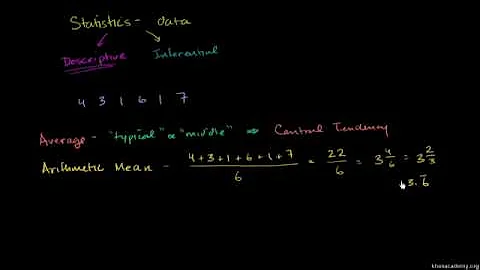 Statistics - data
Descriptive Inferential
4 3 1 6 1 7
Average - "typical" or "middle" ⇒ Central Tendency
Arithmetic Mean - (4+3+1+6+1+7)/6 = 22/6 = 3 4/6 = 3 2/3
3.6̅
khanacademy.org